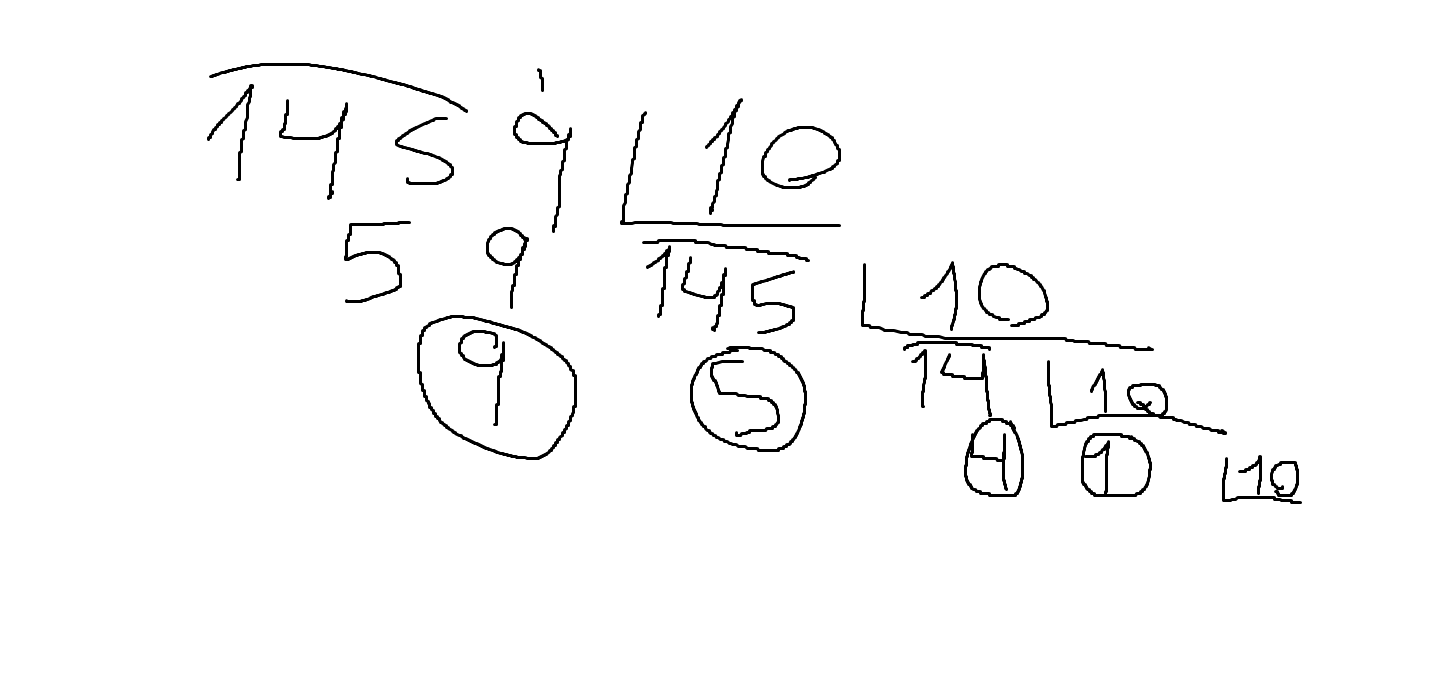 1459 10
59 145 10
9 5 14 10
4 1 10